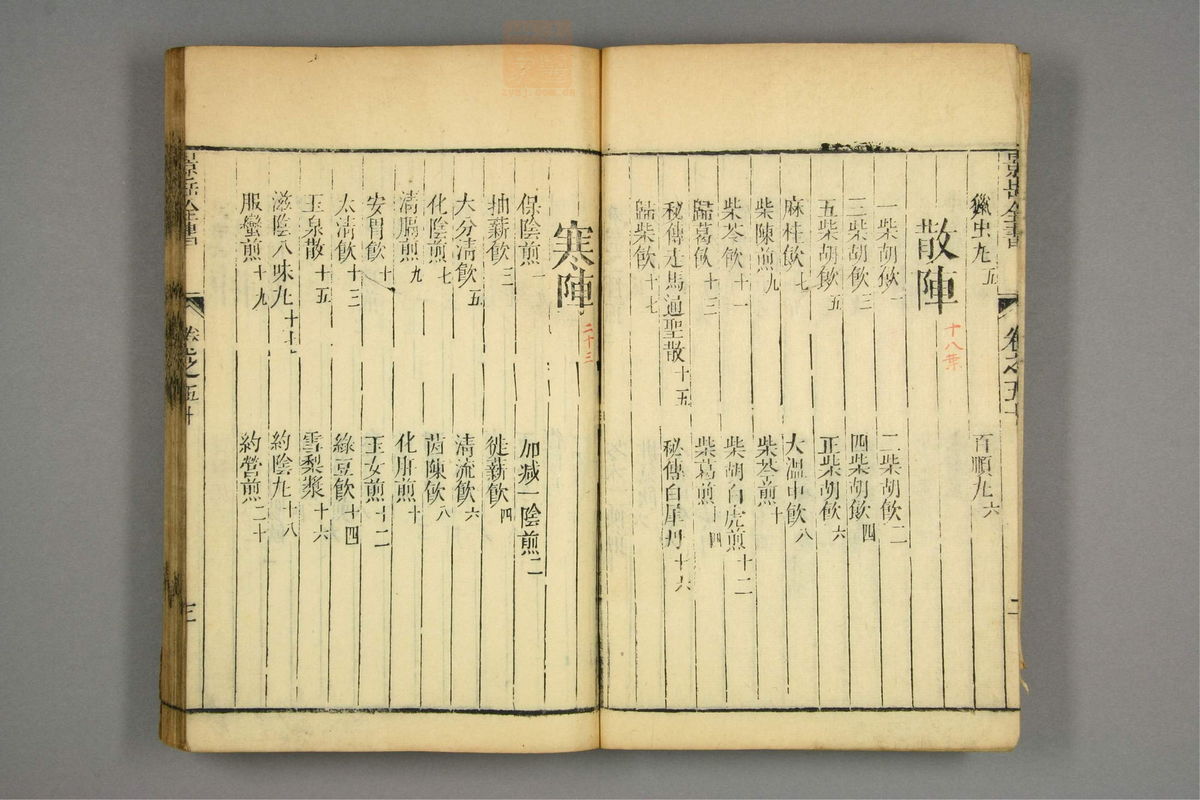 景岳全書 卷之五十 二
獵虫丸五 百順丸六
散陣 十八葉
一柴胡飲一 二柴胡飲二
三柴胡飲三 四柴胡飲四
五柴胡飲五 正柴胡飲六
麻桂飲七 大溫中飲八
柴陳煎九 柴芩煎十
柴苓飲十一 柴胡白虎煎十二
歸葛飲十三 柴葛煎十四
秘傳走馬通聖散十五 秘傳白犀丹十六
歸柴飲十七
寒陣 二十三
保陰煎一 加減一陰煎二
抽薪飲三 徙薪飲四
大分清飲五 清流飲六
化陰煎七 茵陳飲八
清膈煎九 化肝煎十
安胃飲十一 玉女煎十二
太清飲十三 綠豆飲十四
玉泉散十五 雪梨漿十六
滋陰八味丸十七 約陰丸十八
服蠻煎十九 約營煎二十
景岳全書 卷之五十 三